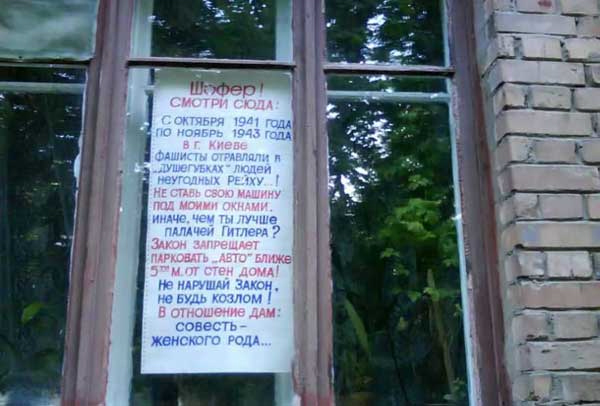 Шофер!
СМОТРИ СЮДА:
С ОКТЯБРЯ 1941 ГОДА
ПО НОЯБРЬ 1943 ГОДА
В Г. КИЕВЕ
ФАШИСТЫ ОТРАВЛЯЛИ В
„ДУШЕГУБКАХ" ЛЮДЕЙ
НЕУГОДНЫХ РЕЙХУ...!
НЕ СТАВЬ СВОЮ МАШИНУ
ПОД МОИМИ ОКНАМИ.
ИНАЧЕ, ЧЕМ ТЫ ЛУЧШЕ
ПАЛАЧЕЙ ГИТЛЕРА?
ЗАКОН ЗАПРЕЩАЕТ
ПАРКОВАТЬ „АВТО" БЛИЖЕ
5ТИ М. ОТ СТЕН ДОМА!
НЕ НАРУШАЙ ЗАКОН,
НЕ БУДЬ КОЗЛОМ!
В ОТНОШЕНИЕ ДАМ:
СОВЕСТЬ –
ЖЕНСКОГО РОДА...